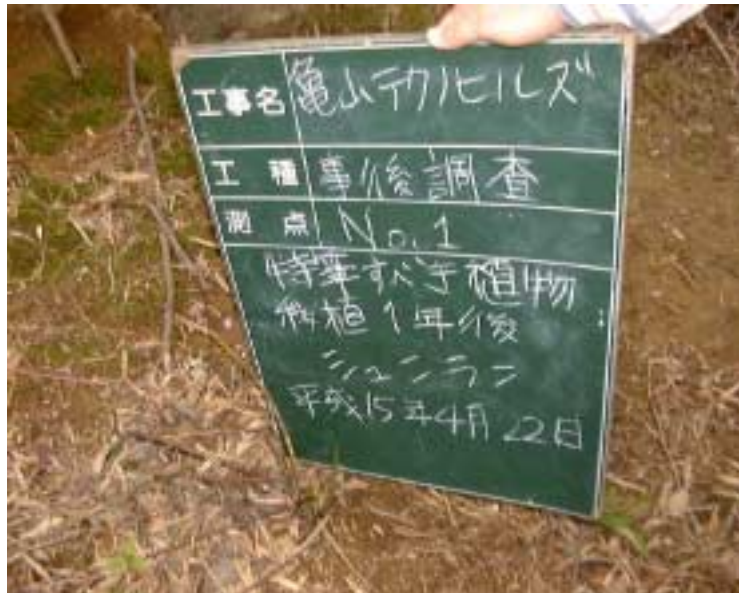 工事名 亀山テクノヒルズ
工種 事後調査
測点 No.1
特筆すべき植物
移植1年後
シュンラン
平成15年4月22日